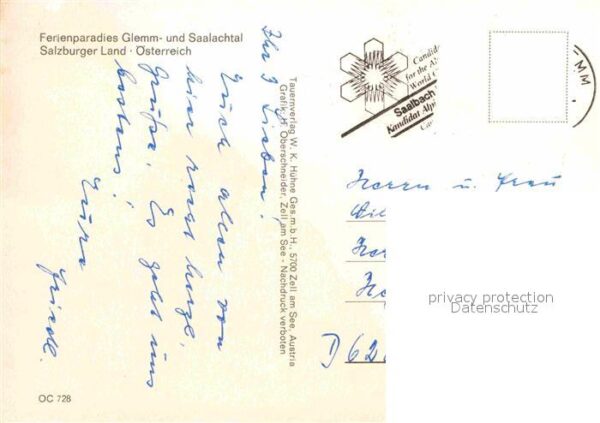 Ferienparadies Glemm- und Saalachtal
Salzburger Land · Österreich
Ihr 3 Lieben!
Euch allen von
hier recht herzl.
Grüße. Es geht uns
bestens!
Eure
Tauernverlag W. K. Hühne Ges.m.b.H., 5700 Zell am See, Austria
Grafik: H. Oberschneider, Zell am See - Nachdruck verboten
Candid
for the A
World C
Saalbach
Kandidat Alp
MM
Herrn u. Frau
D 62
privacy protection
Datenschutz
OC 728